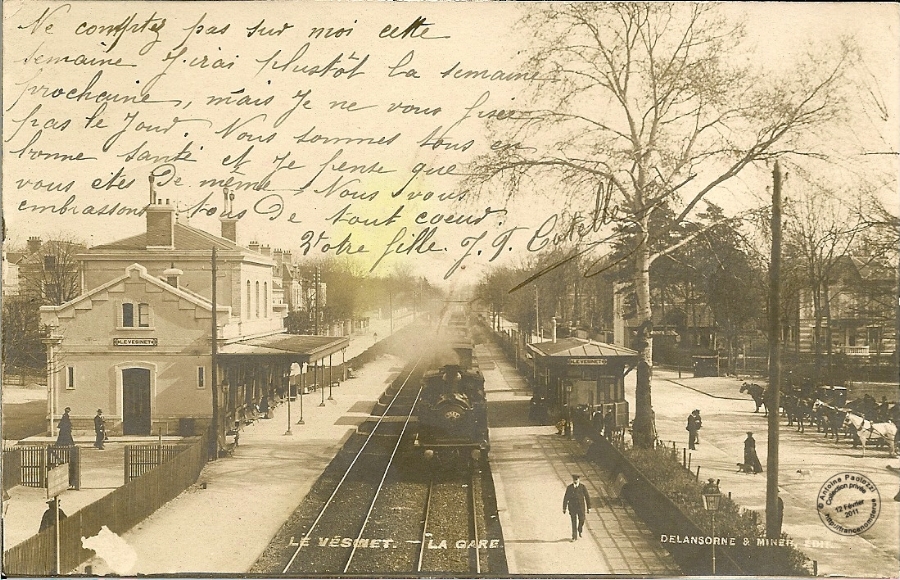 Ne comptez pas sur moi cette
semaine j'irai plustôt la semaine
prochaine, mais je ne vous fixe
pas le jour. Nous sommes tous en
bonne santé et je pense que
vous etes de même. Nous vous
embrassons tous de tout coeur.
Votre fille. J. T.
LE VESINET
LE VESINET
© Antoine Paolozzi
Collection privée
12 Février
2011
LE VÉSINET. - LA GARE.
DELANSORNE & MINER, EDIT.